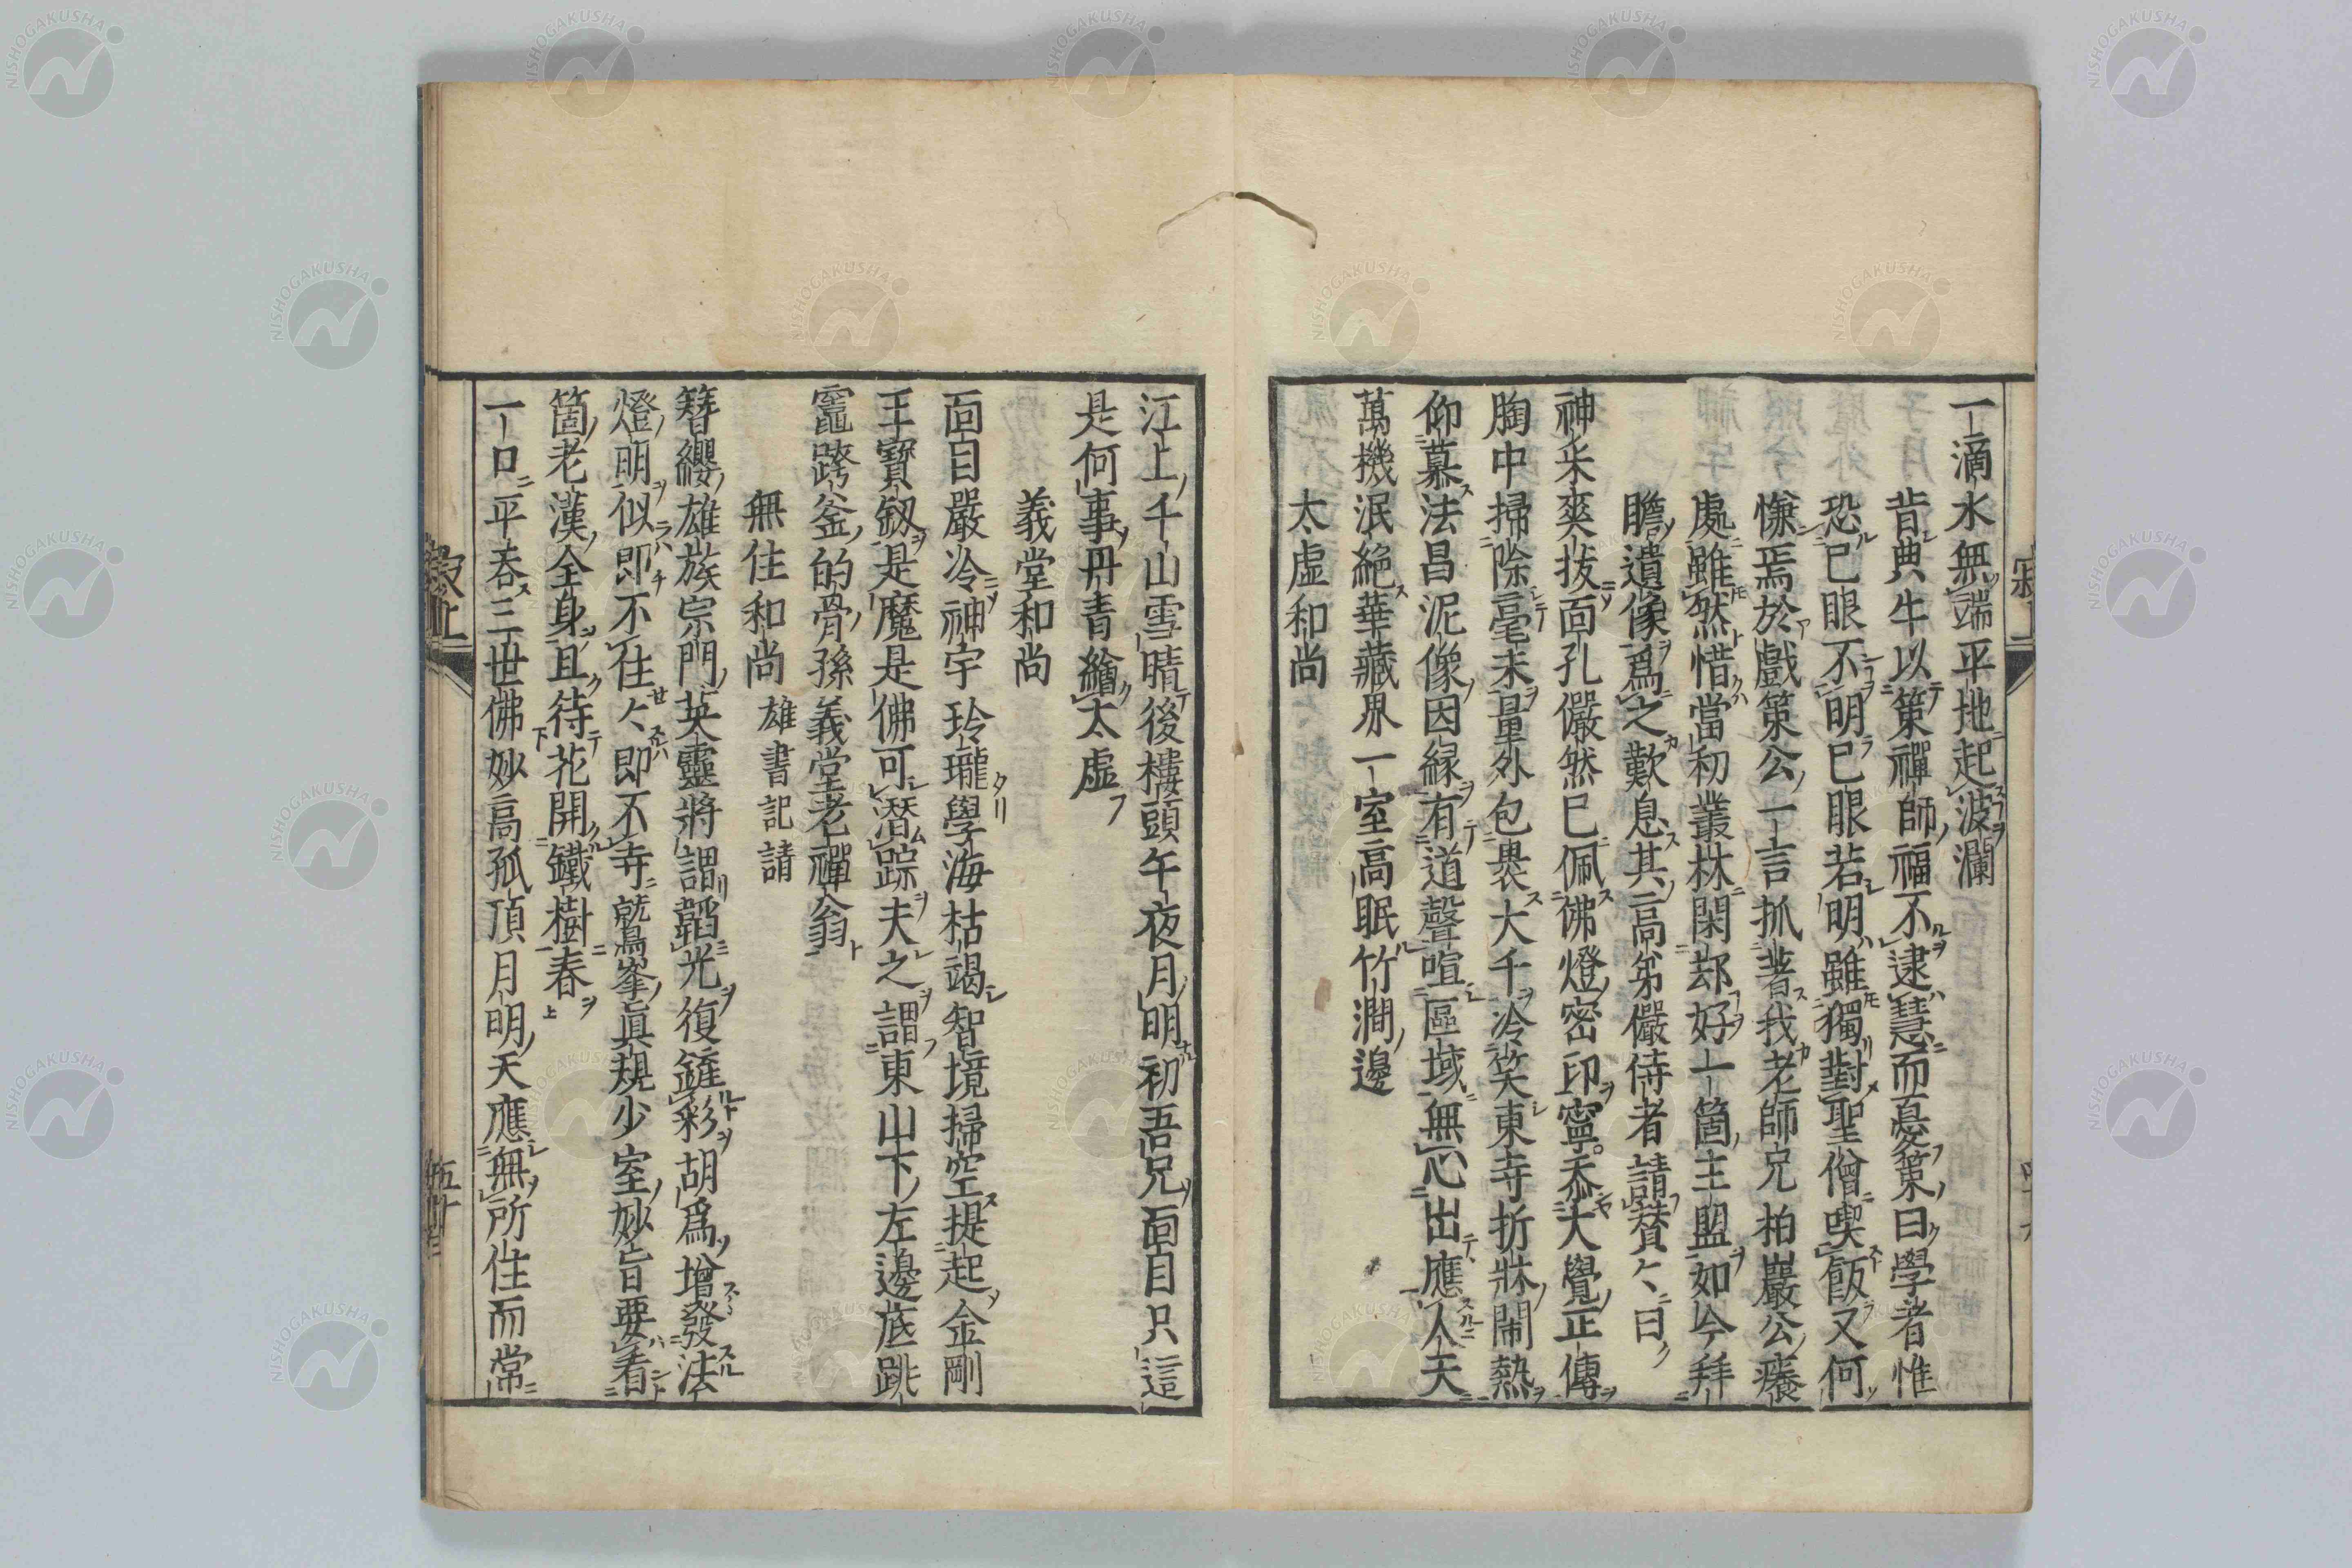 一滴水無端平地起波瀾
昔典牛以策禪師福不逮慧而憂策曰學者惟
恐已眼不明已眼若明雖獨對聖僧喫飯又何
慊焉於戲策公一言抓著我老師兄柏巖公癢
處雖然惜當初叢林閑却好一箇主盟如今拜
瞻遺像爲之歎息其高弟儼侍者請贊〻曰
神采爽拔面孔儼然已佩佛燈密印寧忝大覺正傳
胸中掃除毫末量外包褁大千冷笑東寺折牀鬧熱
仰慕法昌泥像因緣有道聲喧區域無心出應人天
萬機泯絶華藏界一室高眠竹澗邊
太虛和尚
江上千山雪晴後樓頭午夜月明初吾兄面目只這
是何事丹青繪太虛
義堂和尚
面目嚴冷神宇玲瓏學海枯竭智境掃空提起金剛
王寶劔是魔是佛可潛踪夫之謂東山下左邊底跳
竈跨釜的骨孫義堂老禪翁
無住和尚 雄書記請
簪纓雄族宗門英靈將謂韜光復鏟彩胡爲增發法
燈明似即不住〻即不寺鷲峯眞規少室妙旨要看
箇老漢全身且待花開鐵樹春
一口平吞三世佛妙高孤頂月明天應無所住而常